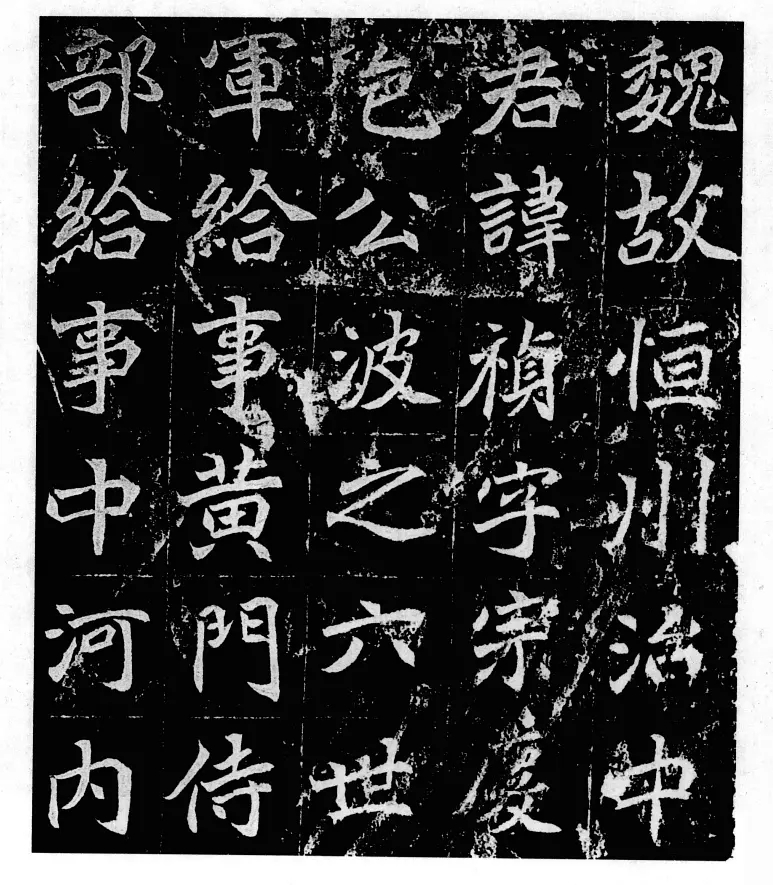 魏故恒州治中
君諱禎字宗慶
邑公波之六世
軍給事黃門侍
部給事中河内